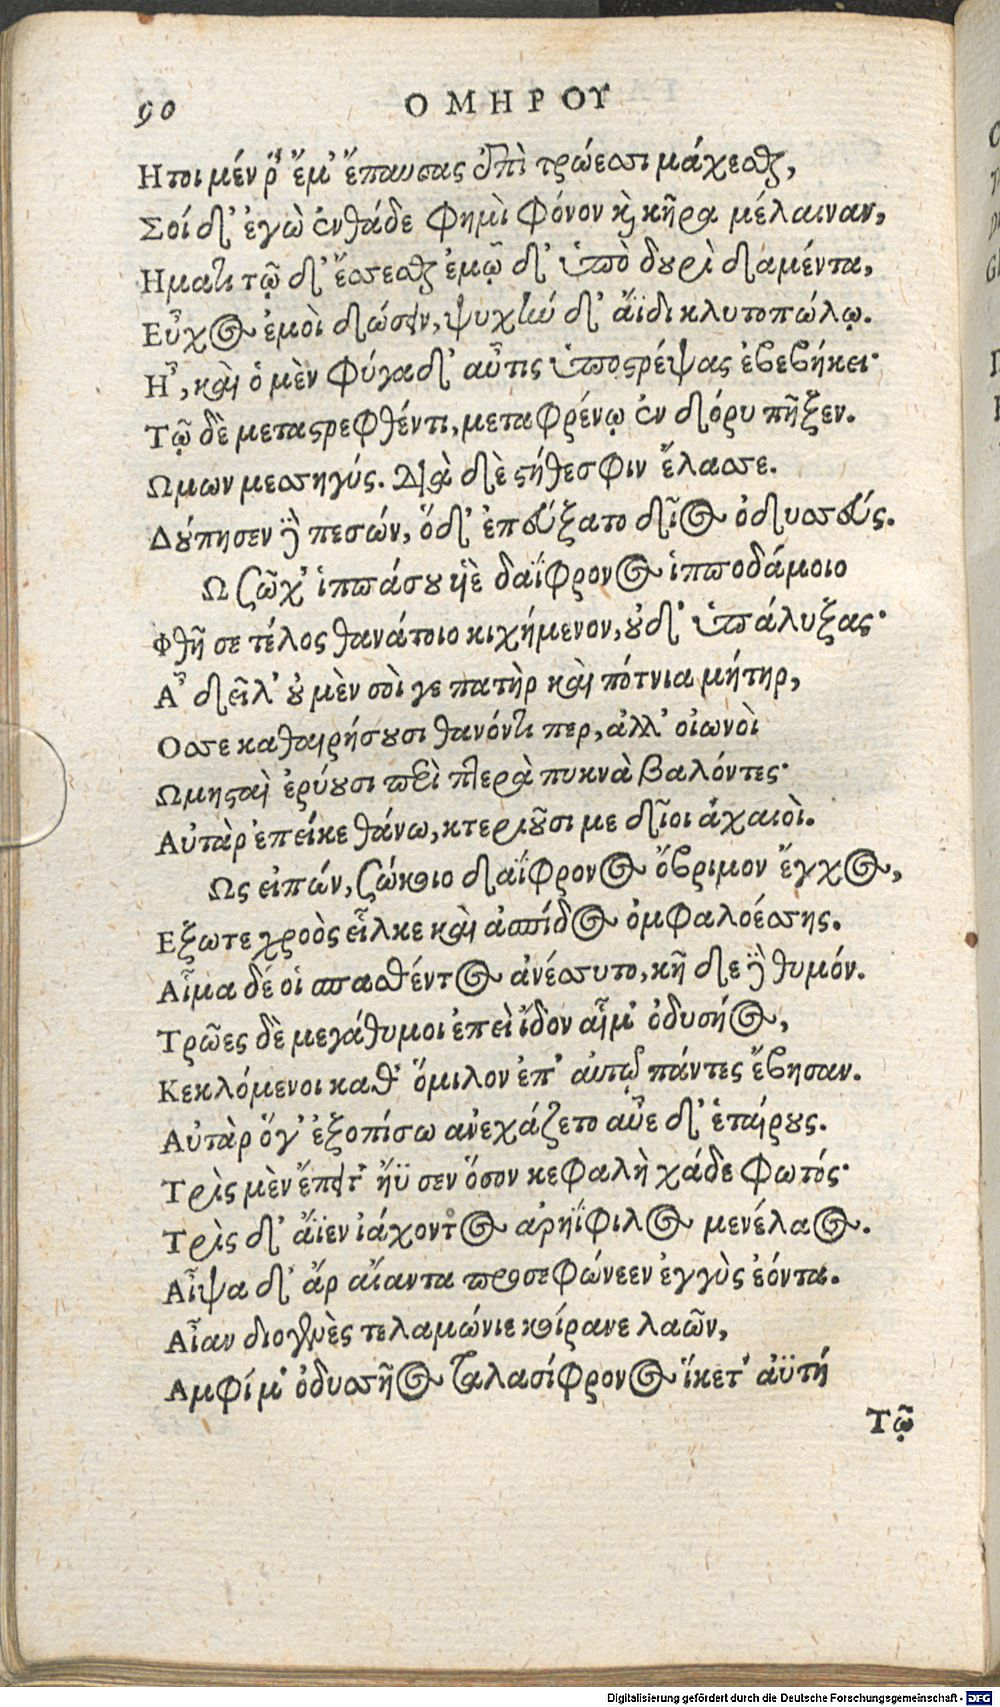 90 ΟΜΗΡΟΥ
Ητοι μέν ῥ' ἔμ' ἔπαυσας ἐπὶ τρώεσσι μάχεσθαι,
Σοί δ' ἐγὼ ἐνθάδε φημὶ φόνον καὶ κῆρα μέλαιναν,
Ηματι τῷ δ' ἔσσεσθαι ἐμῷ δ' ὑπὸ δουρὶ δαμέντα,
Εὖχος ἐμοὶ δώσειν, ψυχὴν δ' ἄϊδι κλυτοπώλῳ.
Η', καὶ ὁ μὲν φύγαδ' αὖτις ὑποστρέψας ἐβεβήκει·
Τῷ δὲ μεταστρεφθέντι, μεταφρένῳ ἐν δόρυ πῆξεν.
Ωμων μεσσηγύς. Διὰ δὲ στήθεσφιν ἔλασσε.
Δούπησεν δὲ πεσών, ὅδ' ἐπεύξατο δῖος ὀδυσσεύς.
Ω ζῶχ' ἱππάσου υἱὲ δαΐφρονος ἱπποδάμοιο
Φθῆ σε τέλος θανάτοιο κιχήμενον, οὐδ' ὑπάλυξας·
Α' δεῖλ' οὐ μὲν σοὶ γε πατὴρ καὶ πότνια μήτηρ,
Οσσε καθαιρήσουσι θανόντι περ, ἀλλ' οἰωνοὶ
Ωμησταὶ ἐρύουσι περὶ πτερὰ πυκνὰ βαλόντες·
Αὐτὰρ ἐπείκε θάνω, κτεριοῦσι με δῖοι ἀχαιοὶ.
Ως εἰπών, ζώκοιο δαΐφρονος ὄβριμον ἔγχος,
Εξωτε χροὸς εἷλκε καὶ ἀσπίδος ὀμφαλοέσσης.
Αἷμα δέ οἱ σπασθέντος ἀνέσσυτο, κῆδε δὲ θυμόν.
Τρῶες δὲ μεγάθυμοι ἐπεὶ ἴδον αἷμ' ὀδυσῆος,
Κεκλόμενοι καθ' ὅμιλον ἐπ' αὐτῷ πάντες ἔβησαν.
Αὐτὰρ ὅγ' ἐξοπίσω ἀνεχάζετο αὖε δ' ἑταίρους.
Τρὶς μὲν ἔπειτ' ἤϋσεν ὅσον κεφαλὴ χάδε φωτός·
Τρὶς δ' ἄϊεν ἰάχοντος ἀρηΐφιλος μενέλαος.
Αἶψα δ' ἄρ αἴαντα προσεφώνεεν ἐγγὺς ἐόντα.
Αἶαν διογενὲς τελαμώνιε κοίρανε λαῶν,
Αμφί μ' ὀδυσσῆος ταλασίφρονος ἵκετ' ἀϋτή
Τῷ
Digitalisierung gefördert durch die Deutsche Forschungsgemeinschaft - DFG